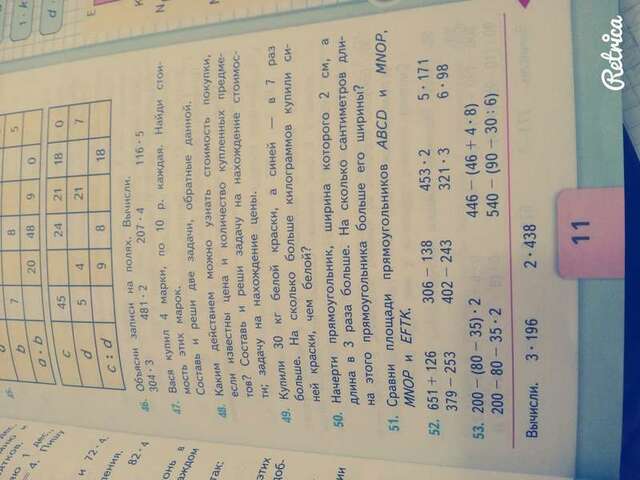 b 7 8 5
a · b 20 48 9 0
c 45 24 21 18 0
d 5 4 21 7
c : d 9 8 18
46. Объясни записи на полях. Вычисли.
304 · 3 481 · 2 207 · 4 116 · 5
47. Вася купил 4 марки, по 10 р. каждая. Найди стои-
мость этих марок.
Составь и реши две задачи, обратные данной.
48. Каким действием можно узнать стоимость покупки,
если известны цена и количество купленных предме-
тов? Составь и реши задачу на нахождение стоимос-
ти; задачу на нахождение цены.
49. Купили 30 кг белой краски, а синей — в 7 раз
больше. На сколько больше килограммов купили си-
ней краски, чем белой?
50. Начерти прямоугольник, ширина которого 2 см, а
длина в 3 раза больше. На сколько сантиметров дли-
на этого прямоугольника больше его ширины?
51. Сравни площади прямоугольников ABCD и MNOP,
MNOP и EFTK.
52. 651 + 126 306 − 138 453 · 2 5 · 171
379 − 253 402 − 243 321 · 3 6 · 98
53. 200 − (80 − 35) · 2 446 − (46 + 4 · 8)
200 − 80 − 35 · 2 540 − (90 − 30 : 6)
Вычисли. 3 · 196 2 · 438
11
= 4. Пишу
и 72 · 4.
82 · 4
так:
Retrica